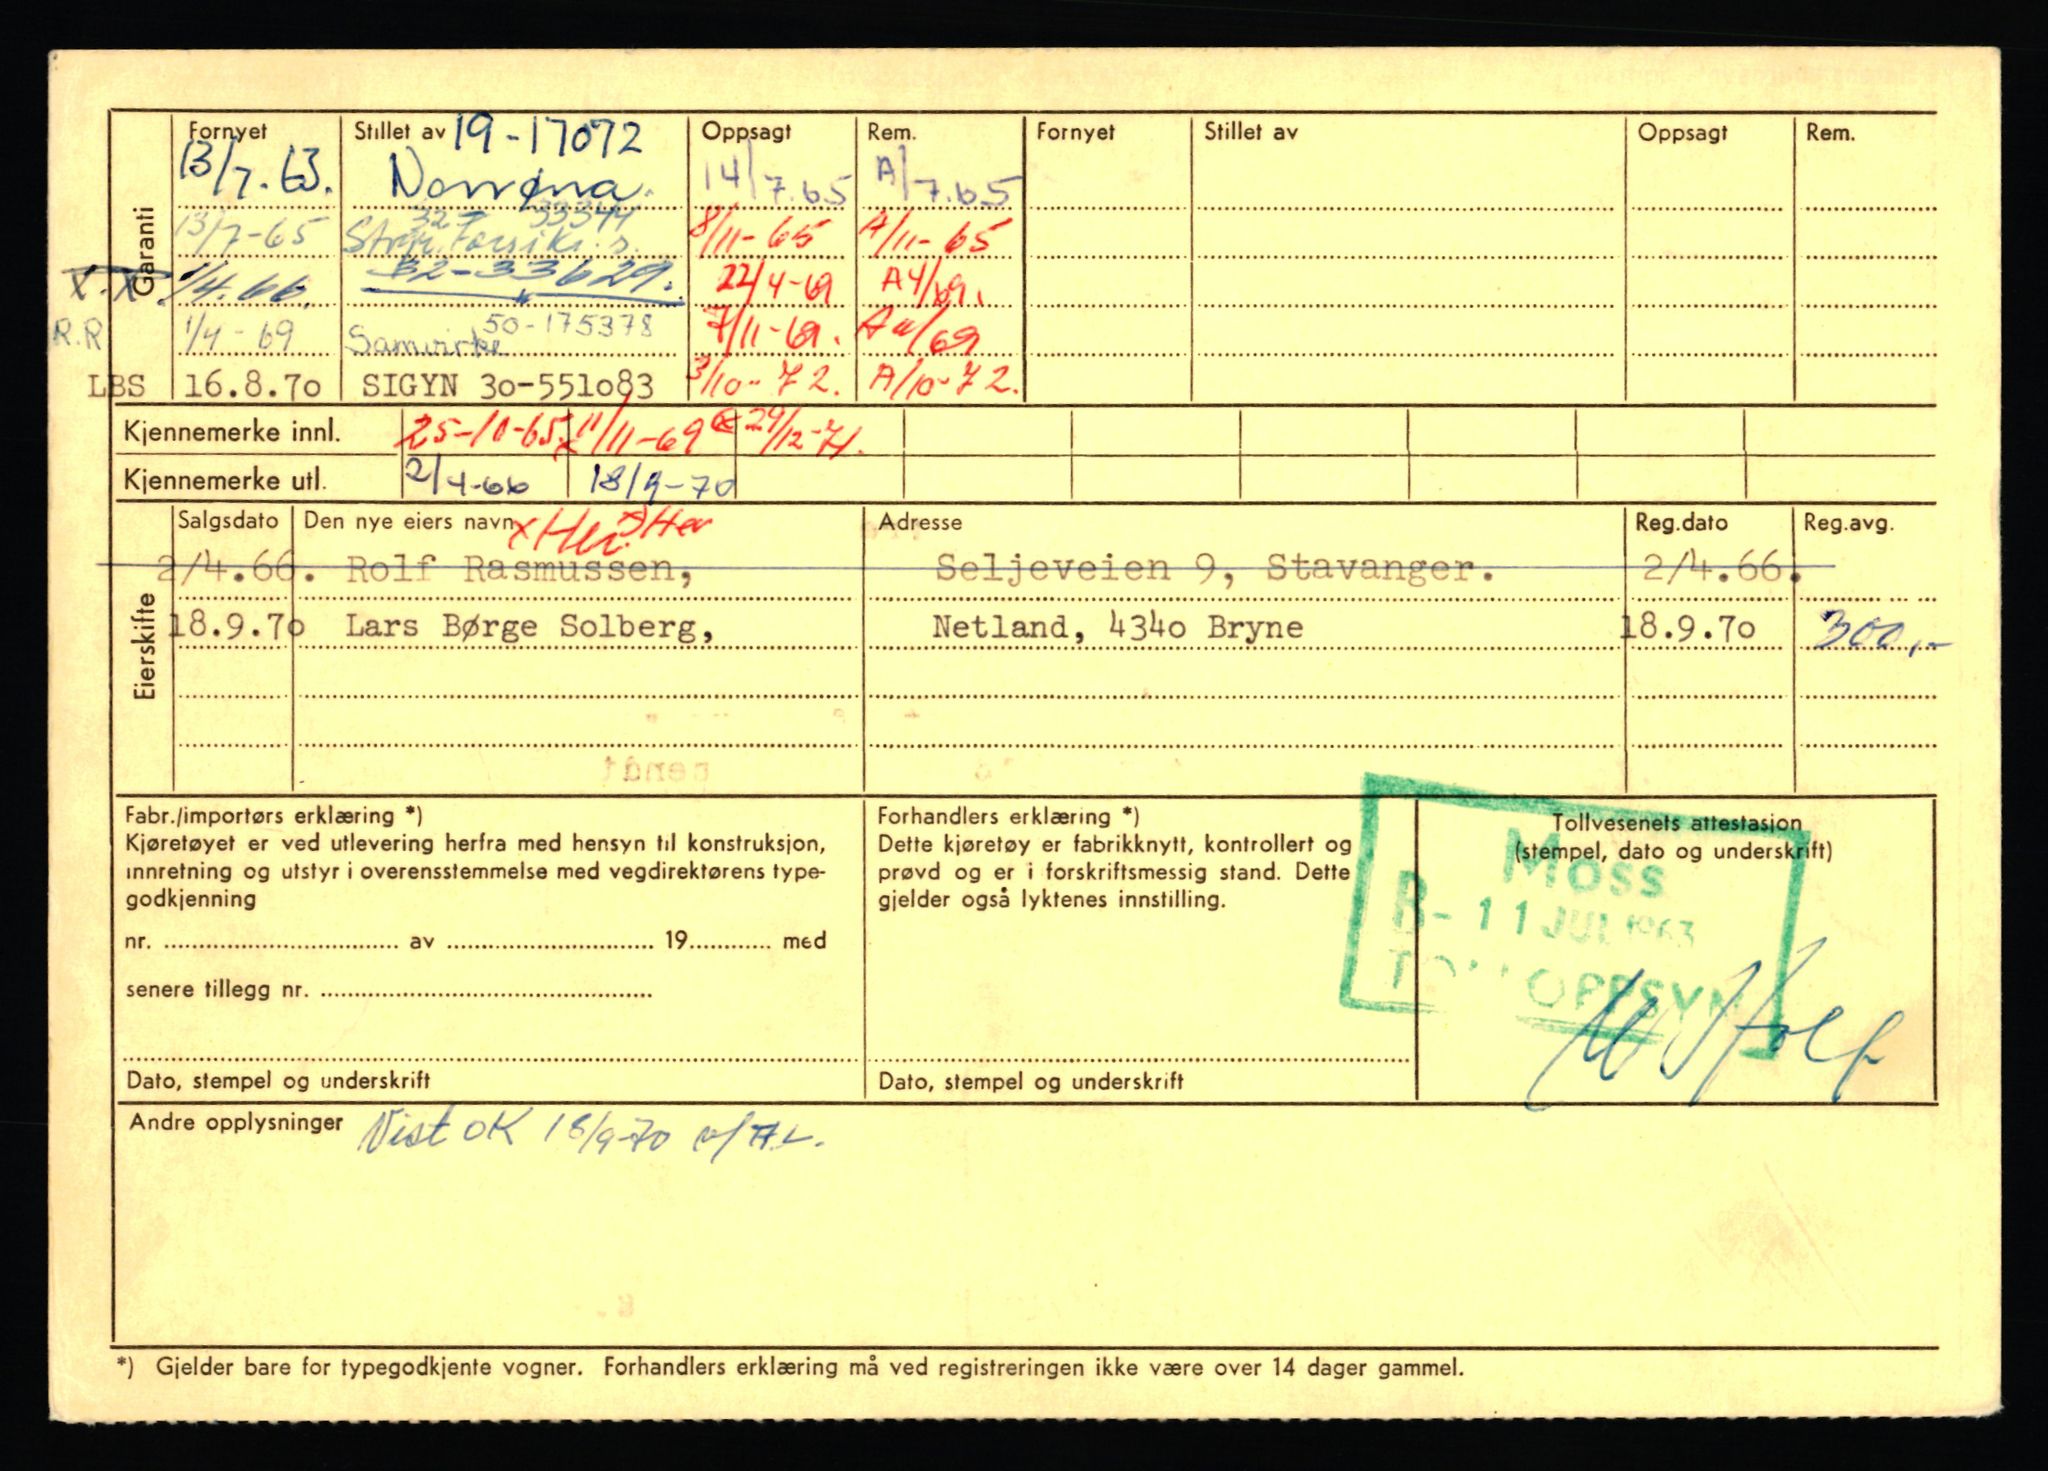 Garanti
Fornyet Stillet av 19-17072 Oppsagt Rem. Fornyet Stillet av Oppsagt Rem.
13/7-63. Norrøna. 14/7.65 A/7.65
32 7 33344
13/7-65 Forsikr.s. 8/11-65 A/11-65
X.X. 1/4.66. 32-33629. 22/4-69 A4/69.
50-175378
R.R 1/4-69 Samvirke 7/11-69. A 11/69
LBS 16.8.70 SIGYN 30-551083 3/10-72. A/10-72.
Kjennemerke innl. 25-10-65. x 11/11-69 29/12-71.
Kjennemerke utl. 2/4-66 18/9-70
Eierskifte
Salgsdato Den nye eiers navn Adresse Reg.dato Reg.avg.
2/4.66. Rolf Rasmussen, Seljeveien 9, Stavanger. 2/4.66.
18.9.70 Lars Børge Solberg, Netland, 4340 Bryne 18.9.70 300,-
Fabr./importørs erklæring *)
Kjøretøyet er ved utlevering herfra med hensyn til konstruksjon,
innretning og utstyr i overensstemmelse med vegdirektørens type-
godkjenning
nr. .................... av .................... 19............ med
senere tillegg nr. ....................
Dato, stempel og underskrift
Forhandlers erklæring *)
Dette kjøretøy er fabrikknytt, kontrollert og
prøvd og er i forskriftsmessig stand. Dette
gjelder også lyktenes innstilling.
Dato, stempel og underskrift
Tollvesenets attestasjon
(stempel, dato og underskrift)
MOSS
B- 11 JUL 1963
OPPSYN
Andre opplysninger Vist OK 18/9-70 v/A.L.
*) Gjelder bare for typegodkjente vogner. Forhandlers erklæring må ved registreringen ikke være over 14 dager gammel.